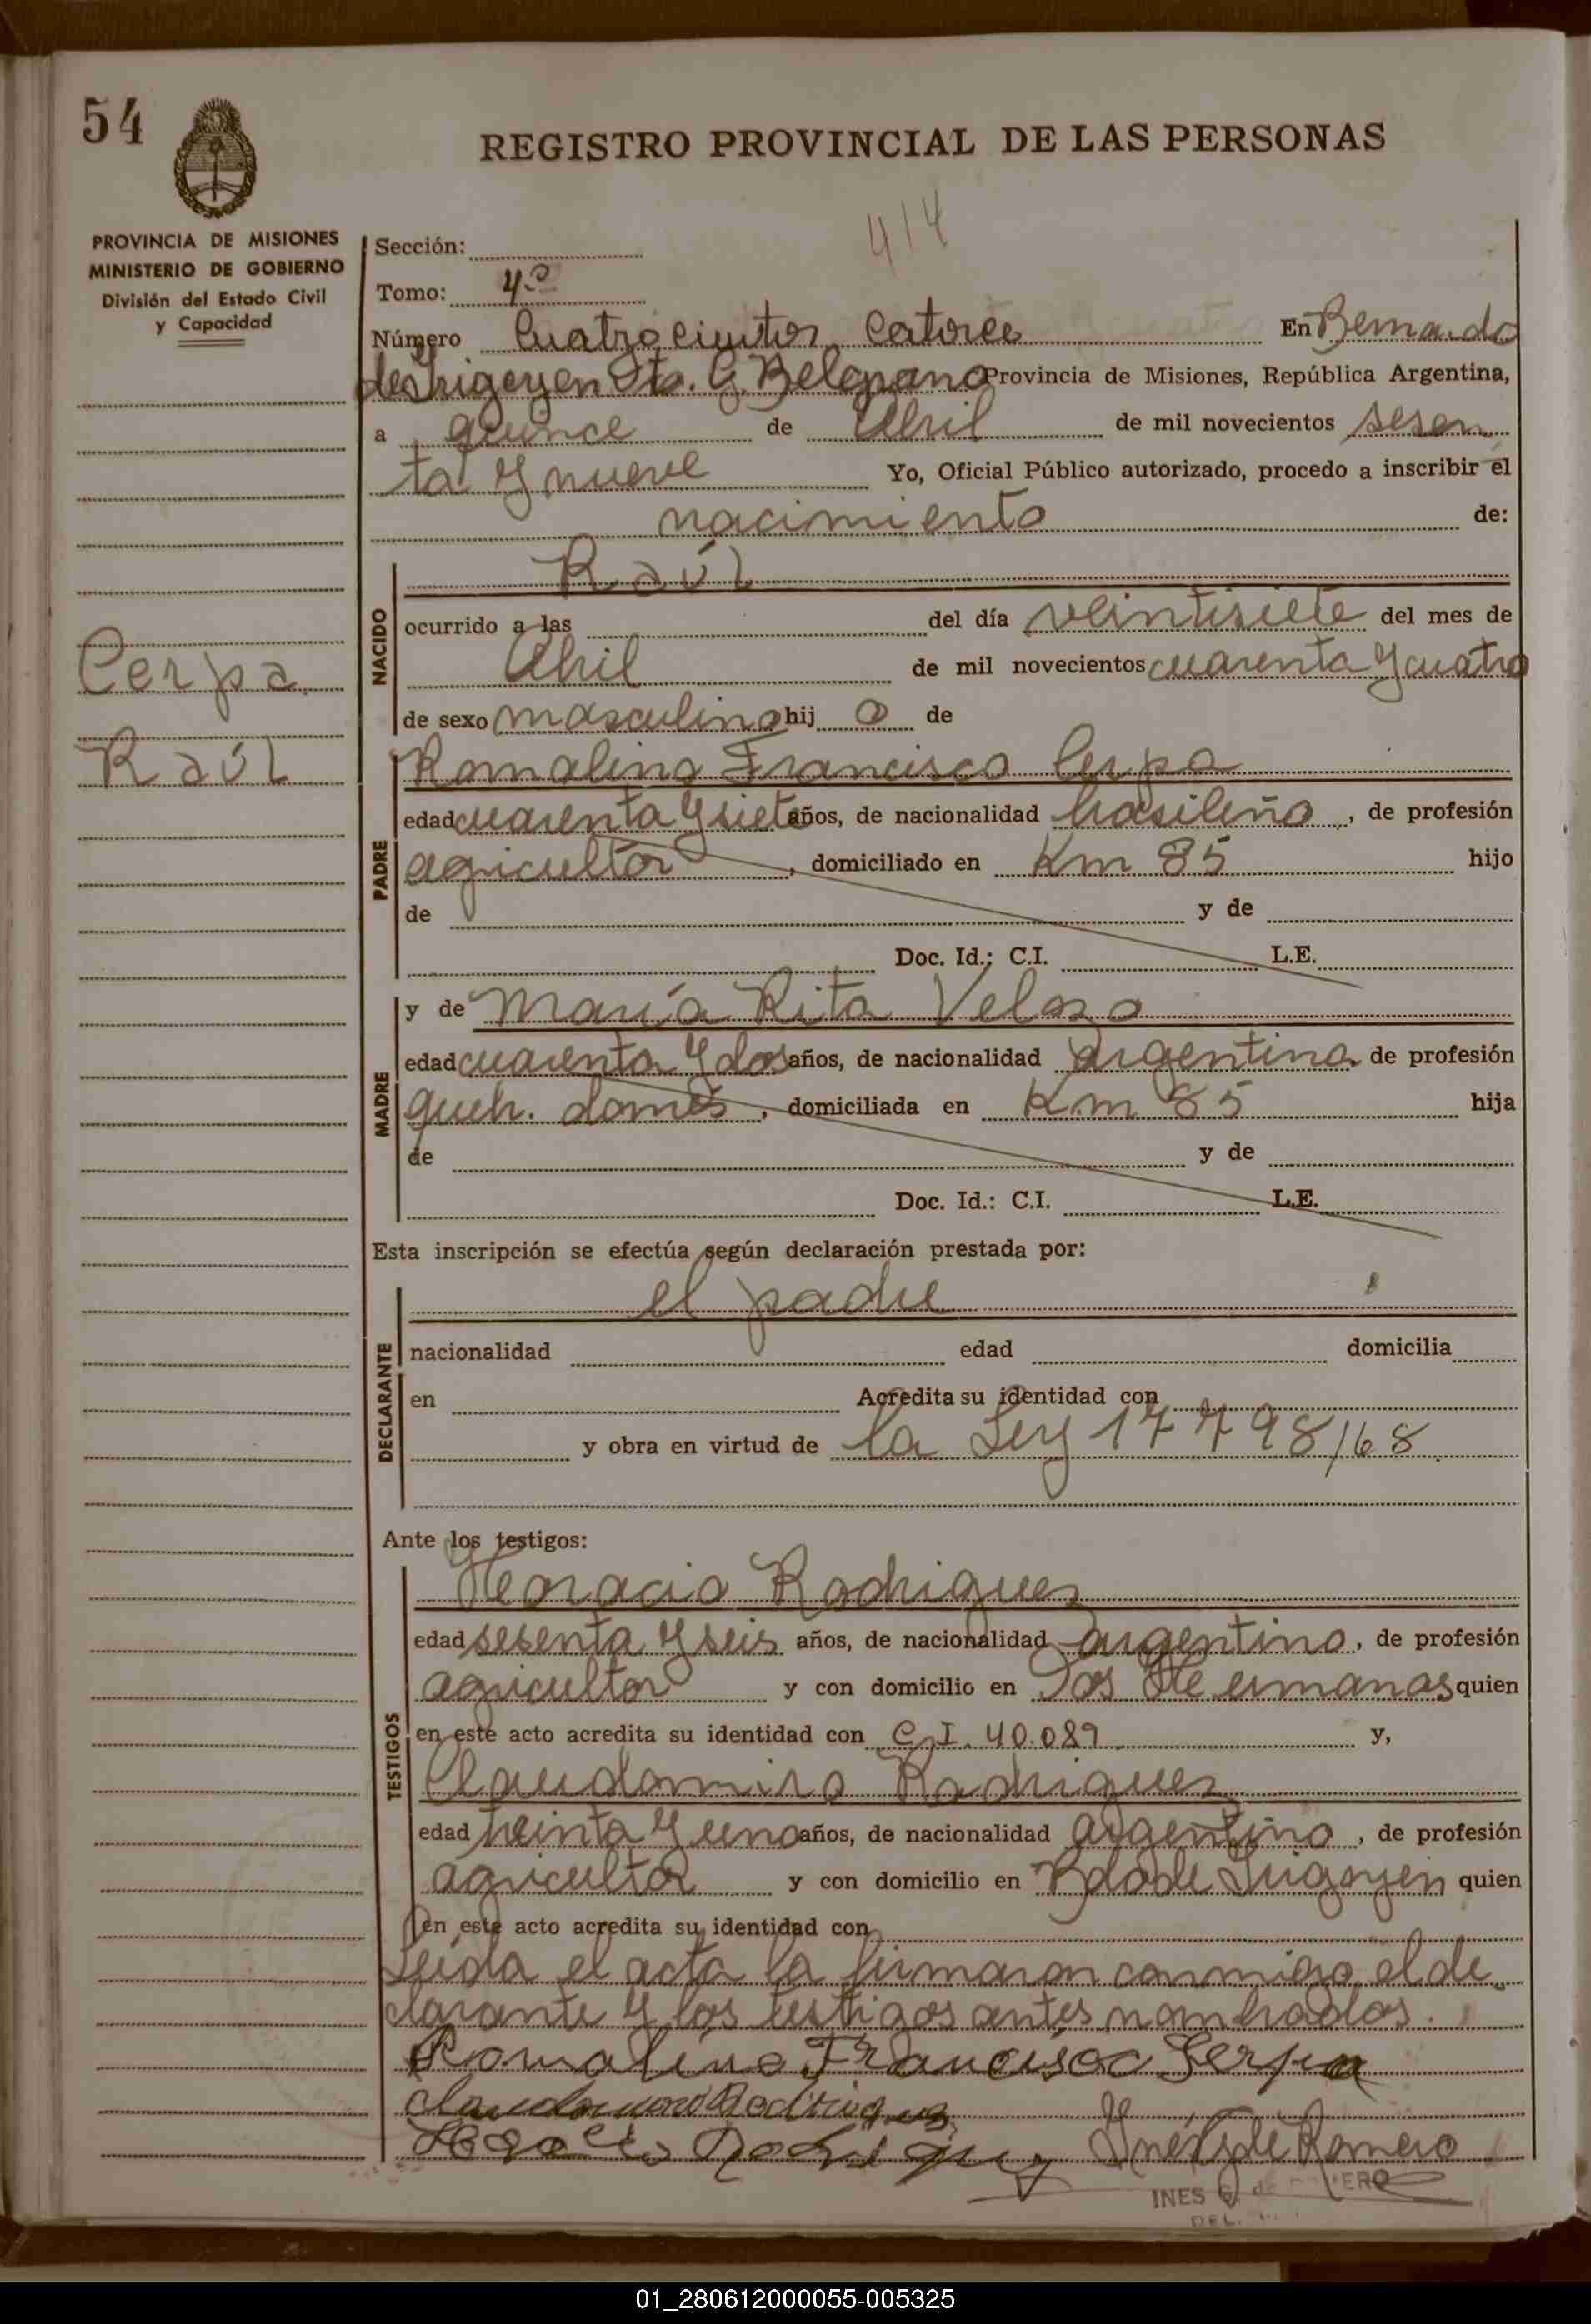 54
REGISTRO PROVINCIAL DE LAS PERSONAS
PROVINCIA DE MISIONES
MINISTERIO DE GOBIERNO
División del Estado Civil
y Capacidad
414
Sección:
Tomo: 4º
Número Cuatrocientos Catorce En Bernardo
de Irigoyen Dto. G. Belgrano Provincia de Misiones, República Argentina,
a quince de Abril de mil novecientos sesen
ta y nueve Yo, Oficial Público autorizado, procedo a inscribir el
nacimiento de:
Cerpa
Raúl
NACIDO
Raúl
ocurrido a las del día veintisiete del mes de
Abril de mil novecientos cuarenta y cuatro
de sexo masculino hij o de
PADRE
Romalino Francisco Cerpa
edad cuarenta y siete años, de nacionalidad brasileño, de profesión
agricultor, domiciliado en Km 85 hijo
de y de
Doc. Id.: C.I. L.E.
MADRE
y de María Rita Velozo
edad cuarenta y dos años, de nacionalidad argentina, de profesión
queh. domés, domiciliada en Km 85 hija
de y de
Doc. Id.: C.I. L.E.
Esta inscripción se efectúa según declaración prestada por:
DECLARANTE
el padre
nacionalidad edad domicilia
en Acredita su identidad con
y obra en virtud de la Ley 17798/68
Ante los testigos:
TESTIGOS
Horacio Rodrigues
edad sesenta y seis años, de nacionalidad argentino, de profesión
agricultor y con domicilio en Dos Hermanas quien
en este acto acredita su identidad con C.I. 40.089 y,
Claudomiro Rodrigues
edad treinta y uno años, de nacionalidad argentino, de profesión
agricultor y con domicilio en Bdo de Irigoyen quien
en este acto acredita su identidad con
Leída el acta la firmaron conmigo el de
clarante y los testigos antes nombrados.
Romalino Francisco Serpa
Claudomiro Rodrigues
Horacio Rodrigues Ines G de Romero
INES G. de
DEL.
01_280612000055-005325